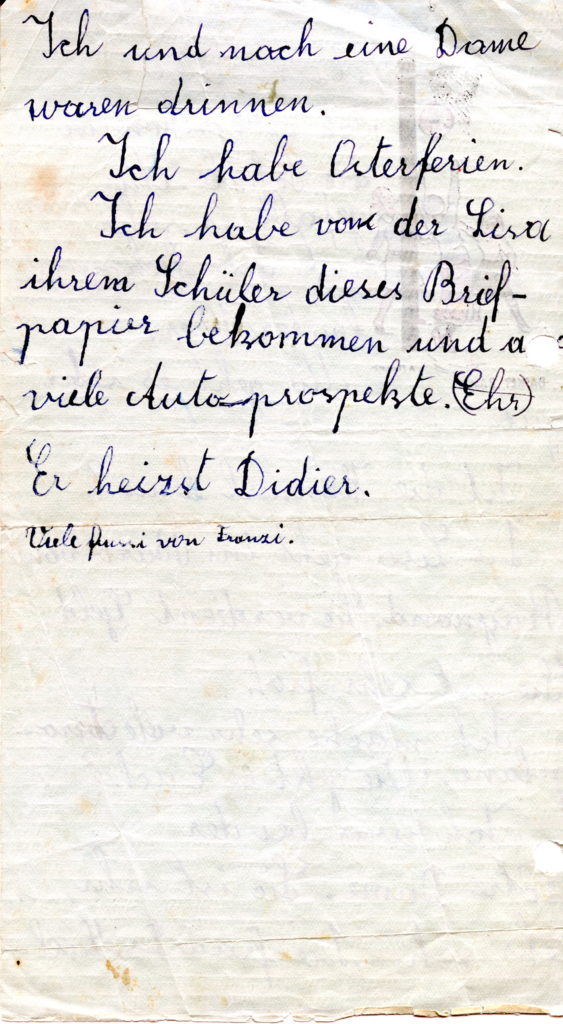 Ich und noch eine Dame
waren drinnen.
Ich habe Osterferien.
Ich habe von der Lisa
ihrem Schüler dieses Brief-
papier bekommen und a
viele Auto-prospekte. (Ehr)
Er heizst Didier.
Viele Bussi von Franzi.